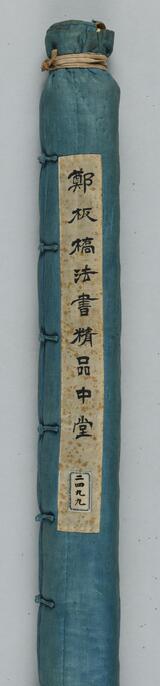 鄭板橋法書精品中堂
二四九九